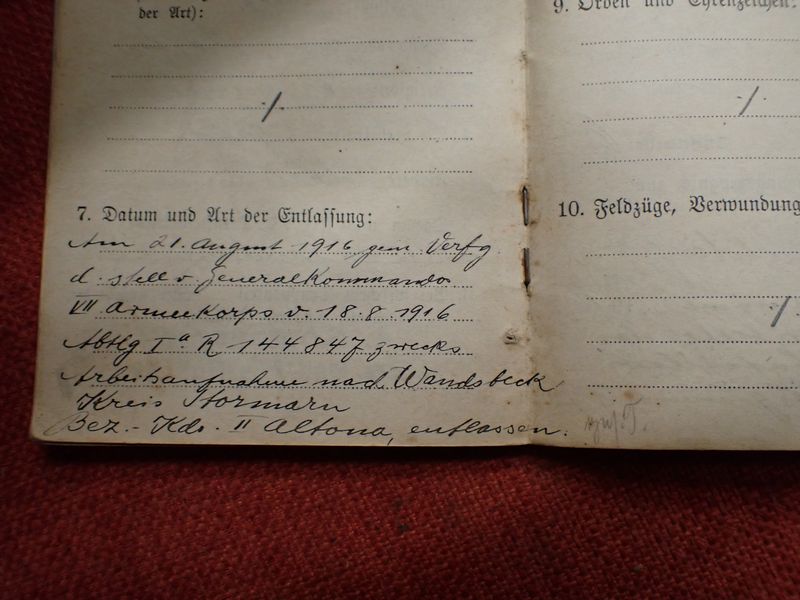 der Art):
./.
7. Datum und Art der Entlassung:
Am 21. August 1916 gem. Verfg.
d. stellv. Generalkommandos
VII Armeekorps v. 18.8.1916
Abtlg Iª R 144847 zwecks
Arbeitsaufnahme nach Wandsbeck
Kreis Stormarn
Bez.-Kdo. II Altona, entlassen.
9. Orden und Ehrenzeichen:
./.
10. Feldzüge, Verwundung
./.